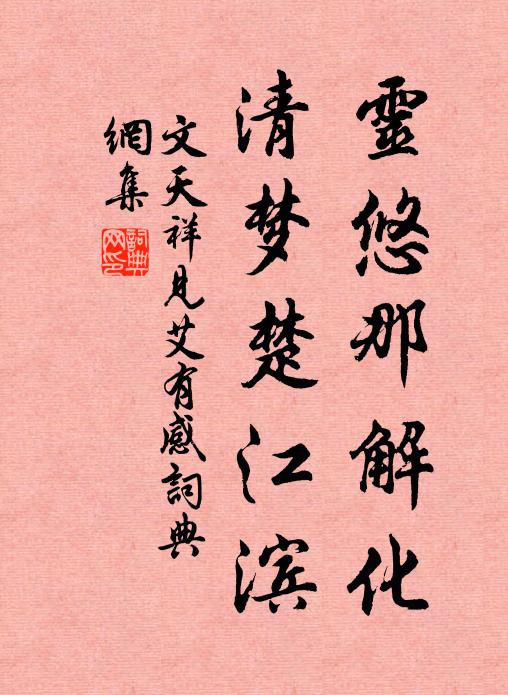 靈悠那解化
清梦楚江滨
文天祥见艾有感詞典
網集
詞典
网印